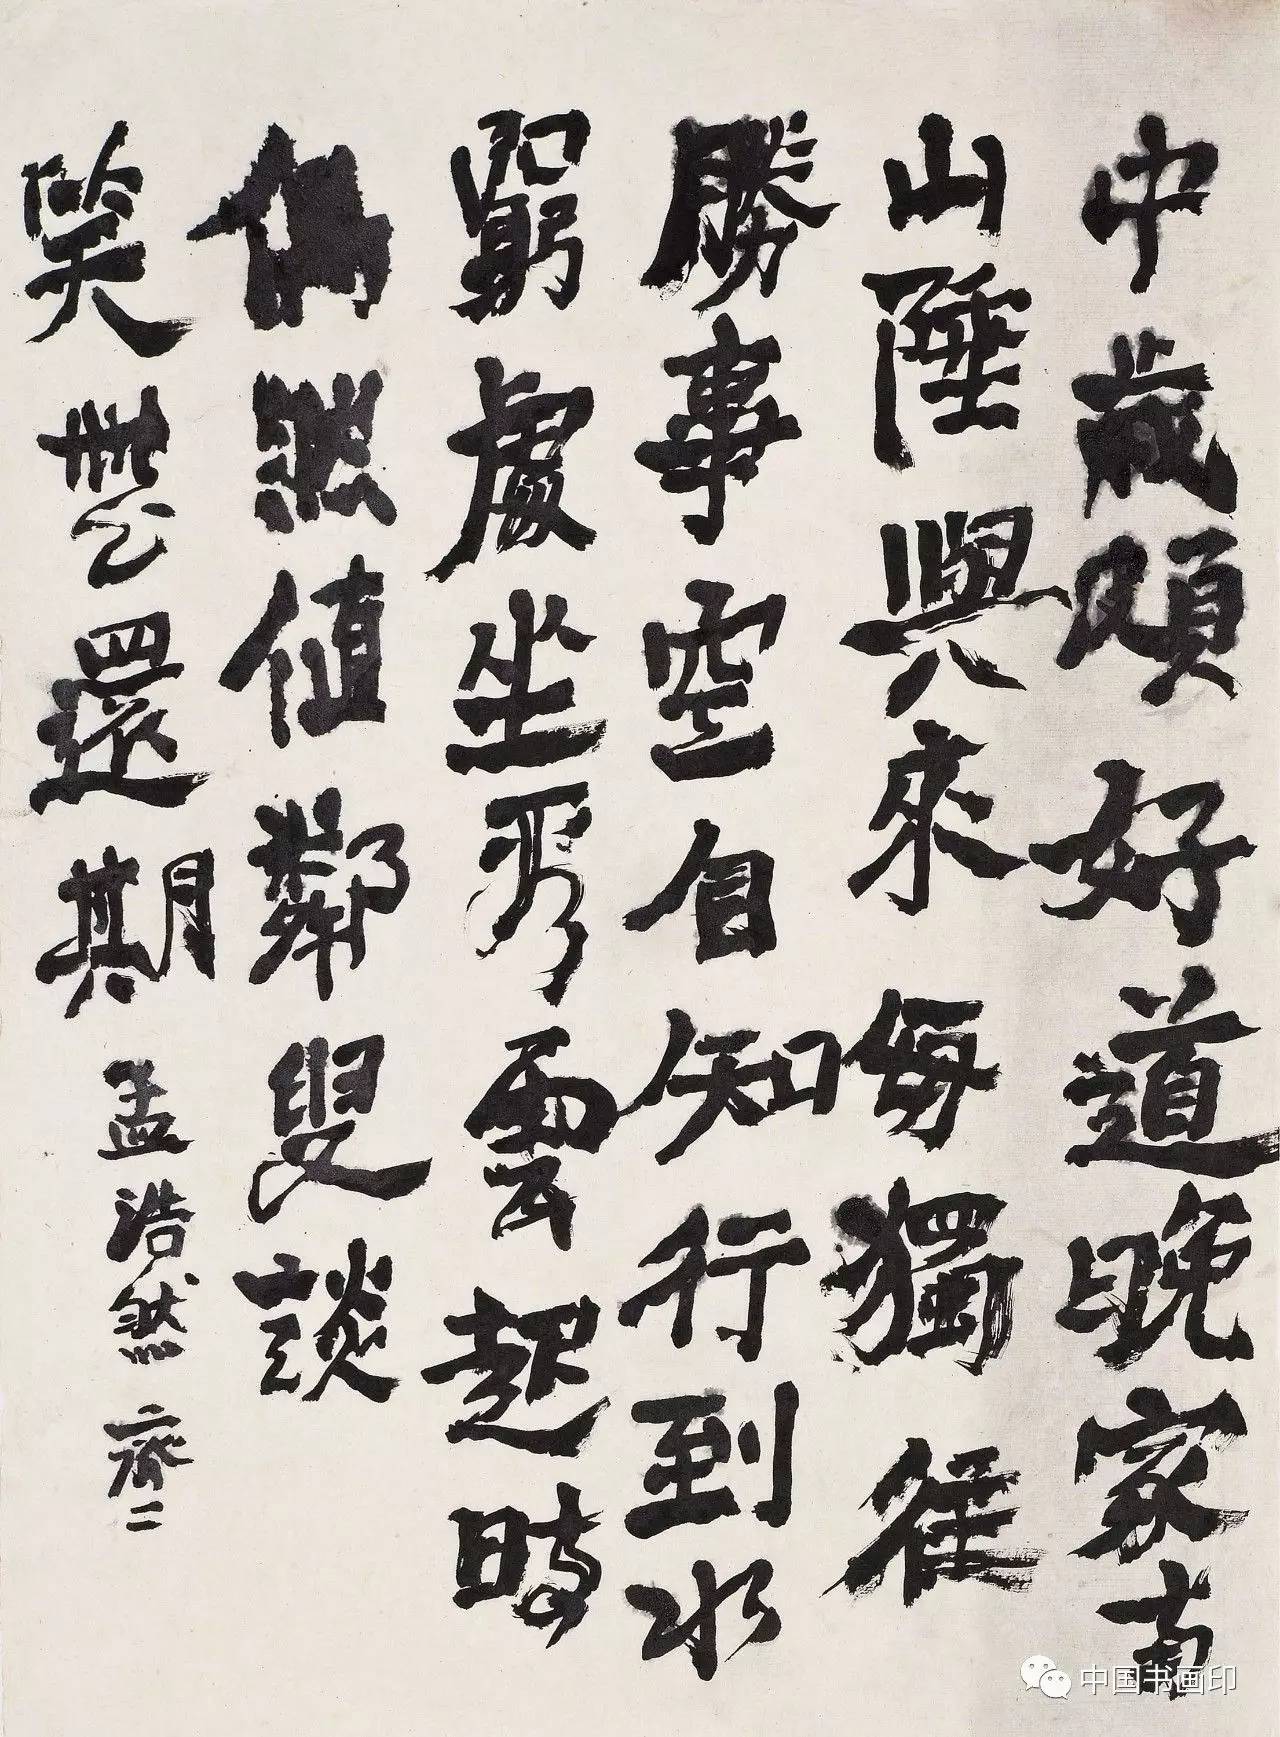 中歲頗好道晚家南
山陲興來每獨往
勝事空自知行到水
窮處坐看雲起時
偶然值鄰叟談
笑無還期 孟浩然 齊二
中国书画印